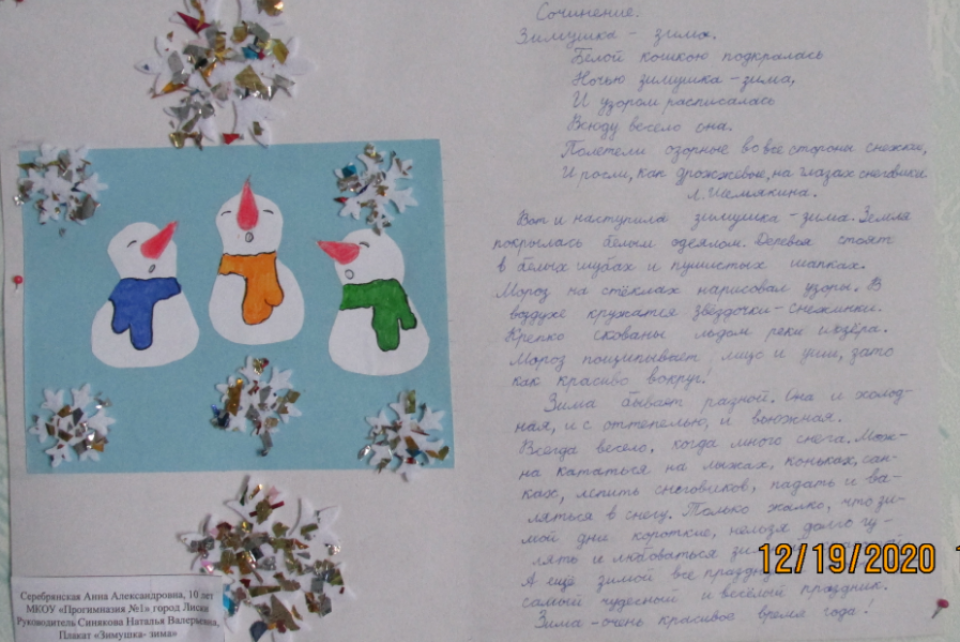 Сочинение.
Зимушка - зима.
Белой кошкою подкралась
Ночью зимушка - зима,
И узором расписалась
Всюду весело она.
Полетели озорные во все стороны снежки,
И росли, как дрожжевые, на глазах снеговики
Л. Шемякина.
Вот и наступила зимушка - зима. Земля
покрылась белым одеялом. Деревья стоят
в белых шубах и пушистых шапках.
Мороз на стёклах нарисовал узоры. В
воздухе кружатся звёздочки - снежинки.
Крепко скованы льдом реки и озёра.
Мороз пощипывает лицо и уши, зато
как красиво вокруг!
Зима бывает разной. Она и холод-
ная, и с оттепелью, и вьюжная.
Всегда весело, когда много снега. Мож-
но кататься на лыжах, коньках, сан-
ках, лепить снеговиков, падать и ва-
ляться в снегу. Только жалко, что зи-
мой дни короткие, нельзя долго гу-
лять и любоваться
А ещё зимой все
самый чудесный и весёлый праздник.
Зима - очень красивое время года!
12/19/2020
Серебрянская Анна Александровна, 10 лет
МКОУ «Прогимназия №1» город Лиски
Руководитель Синякова Наталья Валерьевна,
Плакат «Зимушка- зима»